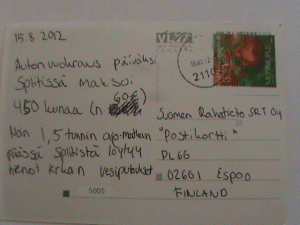 15.8.2012
Autonvuokraus päiväksi
Splitissä maksoi
450 kunaa (n. 60 €)
Noin 1,5 tunnin ajo-matkan
päässä Splitistä löytyy
hienot Krkan vesiputoukset
Suomen Rahatieto SRT Oy
"Postikortti"
PL66
02601 Espoo
FINLAND
5005